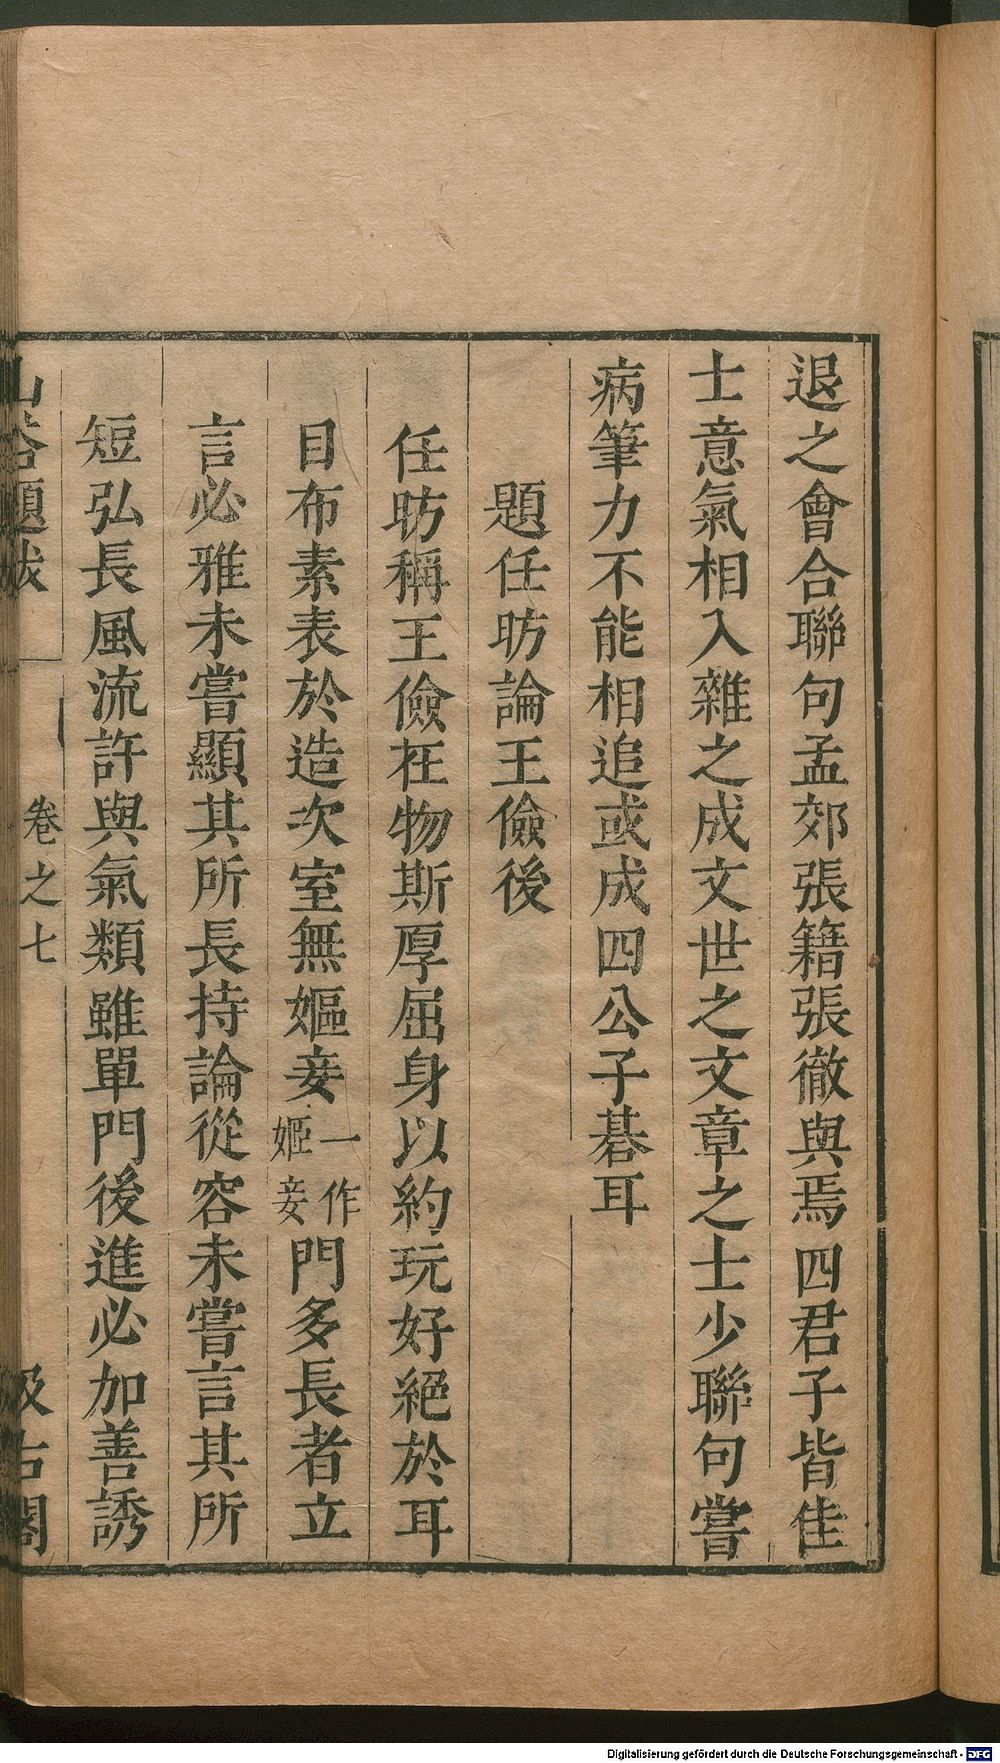 退之會合聯句孟郊張籍張徹與焉四君子皆佳
士意氣相入雜之成文世之文章之士少聯句嘗
病筆力不能相追或成四公子碁耳
題任昉論王儉後
任昉稱王儉在物斯厚屈身以約玩好絕於耳
目布素表於造次室無嫗妾一作姬妾門多長者立
言必雅未嘗顯其所長持論從容未嘗言其所
短弘長風流許與氣類雖單門後進必加善誘
山谷題跋
卷之七
汲古閣
Digitalisierung gefördert durch die Deutsche Forschungsgemeinschaft - DFG